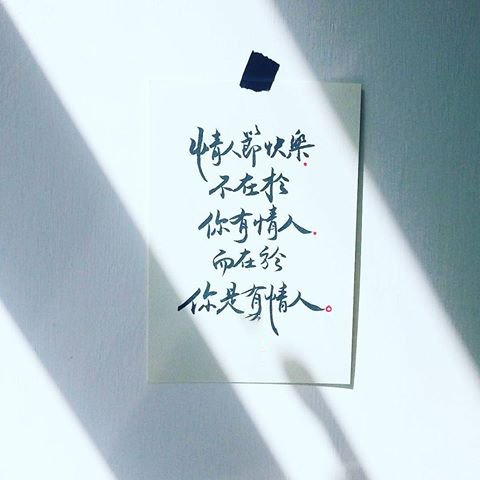 情人節快樂.
不在於
你有情人.
而在於
你是真情人。